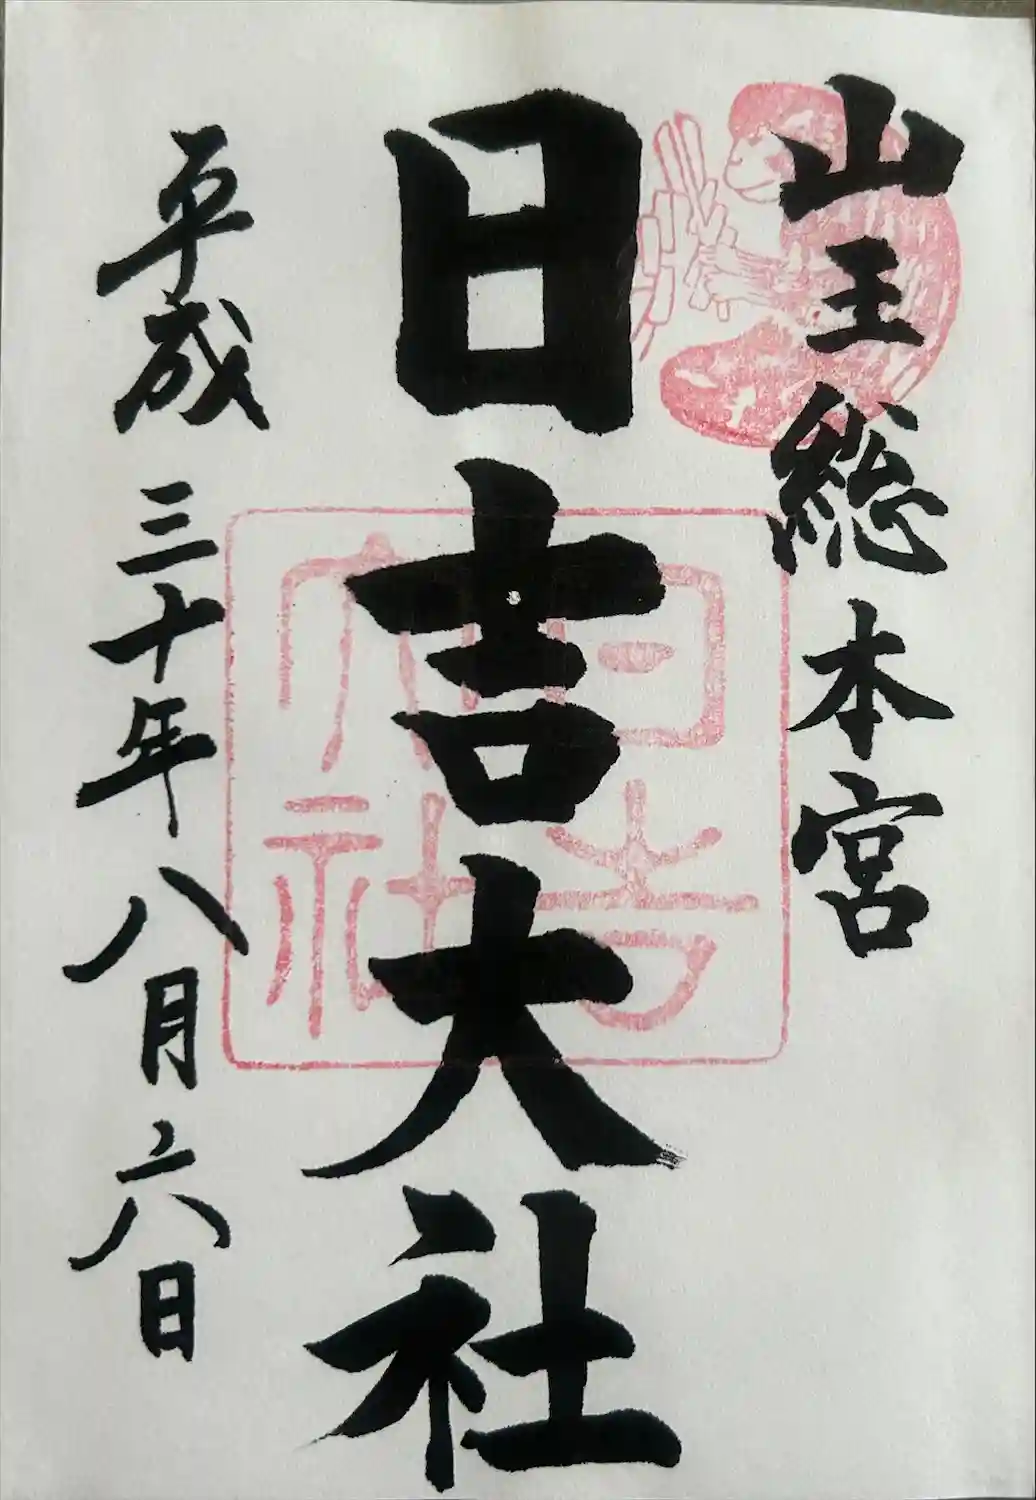 山王総本宮
日吉大社
日吉大社
平成三十年八月六日